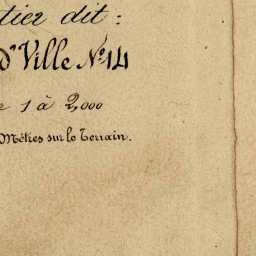 tier dit :
d'' Ville N° 14
e 1 à 2,000
Mètres sur le Terrain.